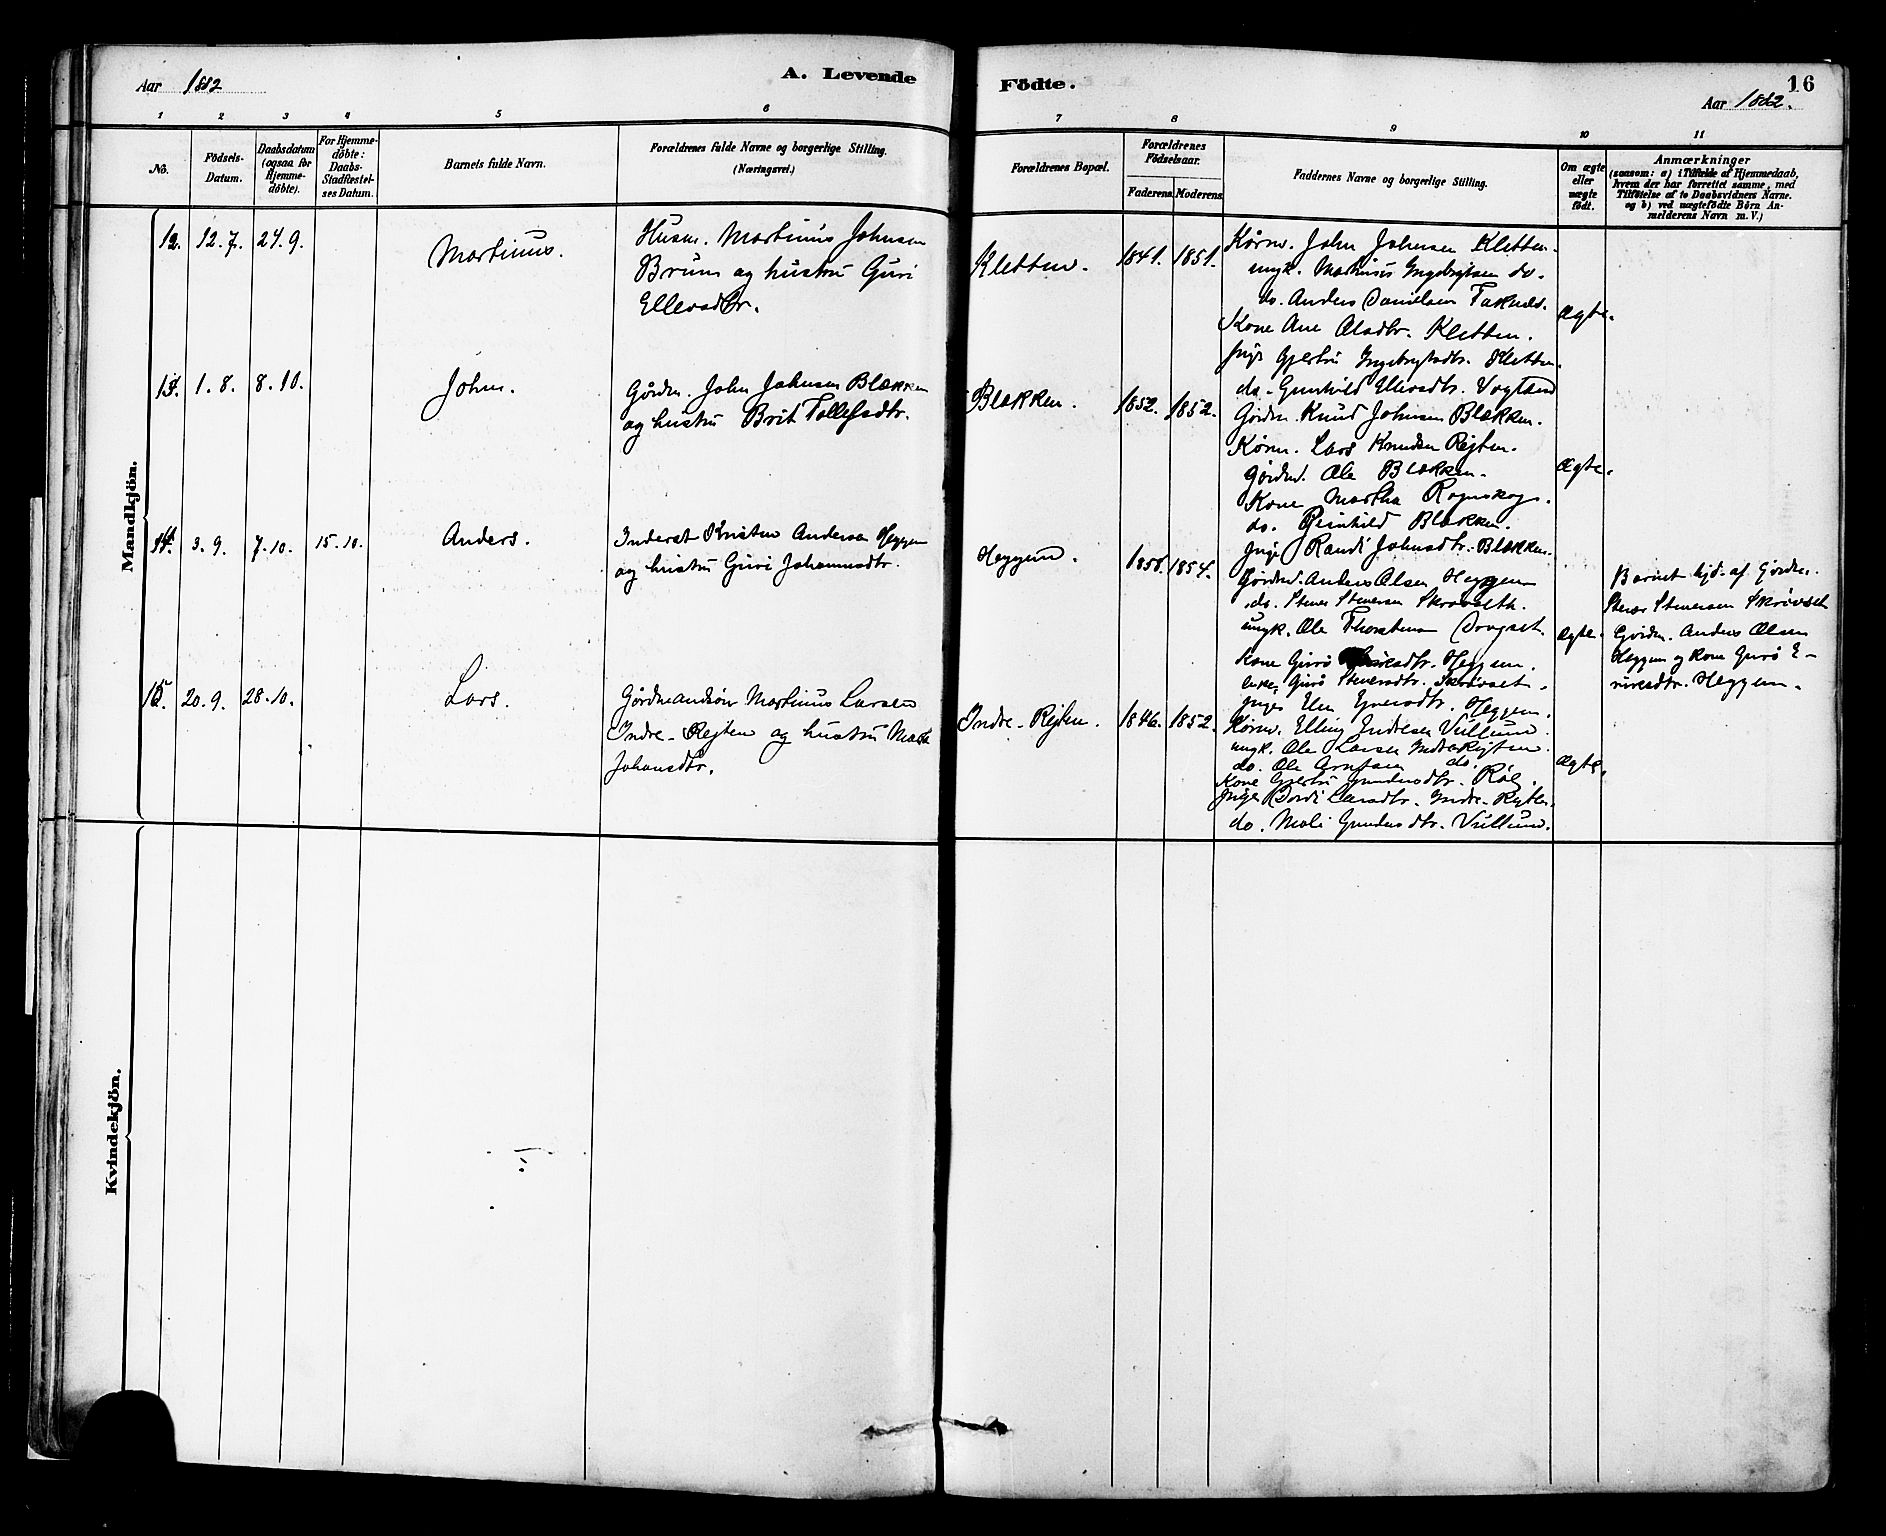 Aar 1882
A. Levende
Födte.
16
Aar 1882.
1 2 3 4 5 6 7 8 9 10 11
No.
Födsels-
Datum.
Daabsdatum
(ogsaa for
Hjemme-
döbte).
For Hjemme-
döbte:
Daabs-
Stadfæstel-
ses Datum.
Barnets fulde Navn.
Forældrenes fulde Navne og borgerlige Stilling.
(Næringsvei.)
Forældrenes Bopæl.
Forældrenes
Födselsaar.
Faderens. Moderens.
Faddernes Navne og borgerlige Stilling.
Om ægte
eller
uægte
födt.
Anmærkninger
(saasom: a) i Tilfælde af Hjemmedaab,
hvem der har forrettet samme, med
Tilföielse af to Daabsvidners Navne.
og b) ved uægtefödte Börn An-
melderens Navn m. V.)
Mandkjön.
12. 12.7. 24.9.
Martinus.
Husm. Martinus Johnsen
Brun og hustru Guri
Ellevsdtr.
Kletten. 1841. 1851.
Kårm. John Johnsen Kletten.
ungk. Martinus Ingebrigtsen do.
do. Anders Danielsen Taknes.
Kone Ane Olsdtr. Kletten.
Pige Gjertru Ingebrigtsdtr. Kletten.
do. Gunhild Ellevsdtr. Vogland
Ægte.
13. 1.8. 8.10.
John.
Gårdm. John Johnsen Blækken
og hustru Brit Tollefsdtr.
Blækken. 1852. 1852.
Gårdm. Knud Johnsen Blækken.
Kårm. Lars Knudsen Rejten.
Gårdmd. Ole Blækken.
Kone Martha Rognskog.
do. Blækken.
Pige Randi Johnsdtr. Blækken.
Ægte.
14. 3.9. 7.10. 15.10.
Anders.
Inderst Kristen Andersen Heggem
og hustru Guri Johannesdtr.
Heggem. 1854.
Gårdmd. Anders Olsen Heggem
do. Stener Stenersen Skrøvseth.
ungk. Ole
Kone Guro Heggem.
Enke Guro Stenersdtr. Skrøvset.
Pige Heggem.
Ægte.
Barnet hjd. af Gårdm.
Stener Stenersen Skrøvset
Gårdm. Anders Olsen
Heggem og Kone Guro E-
riksdtr. Heggem.
15. 20.9. 28.10.
Lars.
Gårdmandsøn Martinus Larsen
Indre-Rejten og hustru
Johansdtr.
Indre-Rejten. 1846. 1852.
Kårm. Elling Endresen Vullum.
ungk. Ole Larsen Indre Rejten.
do. Ole Arntsen do.
Kone Gjertru Gundersdtr.
Pige Larsdtr. Indre-Rejten.
do. Mali Gundersdtr. Vullum.
Ægte.
Kvindekjön.